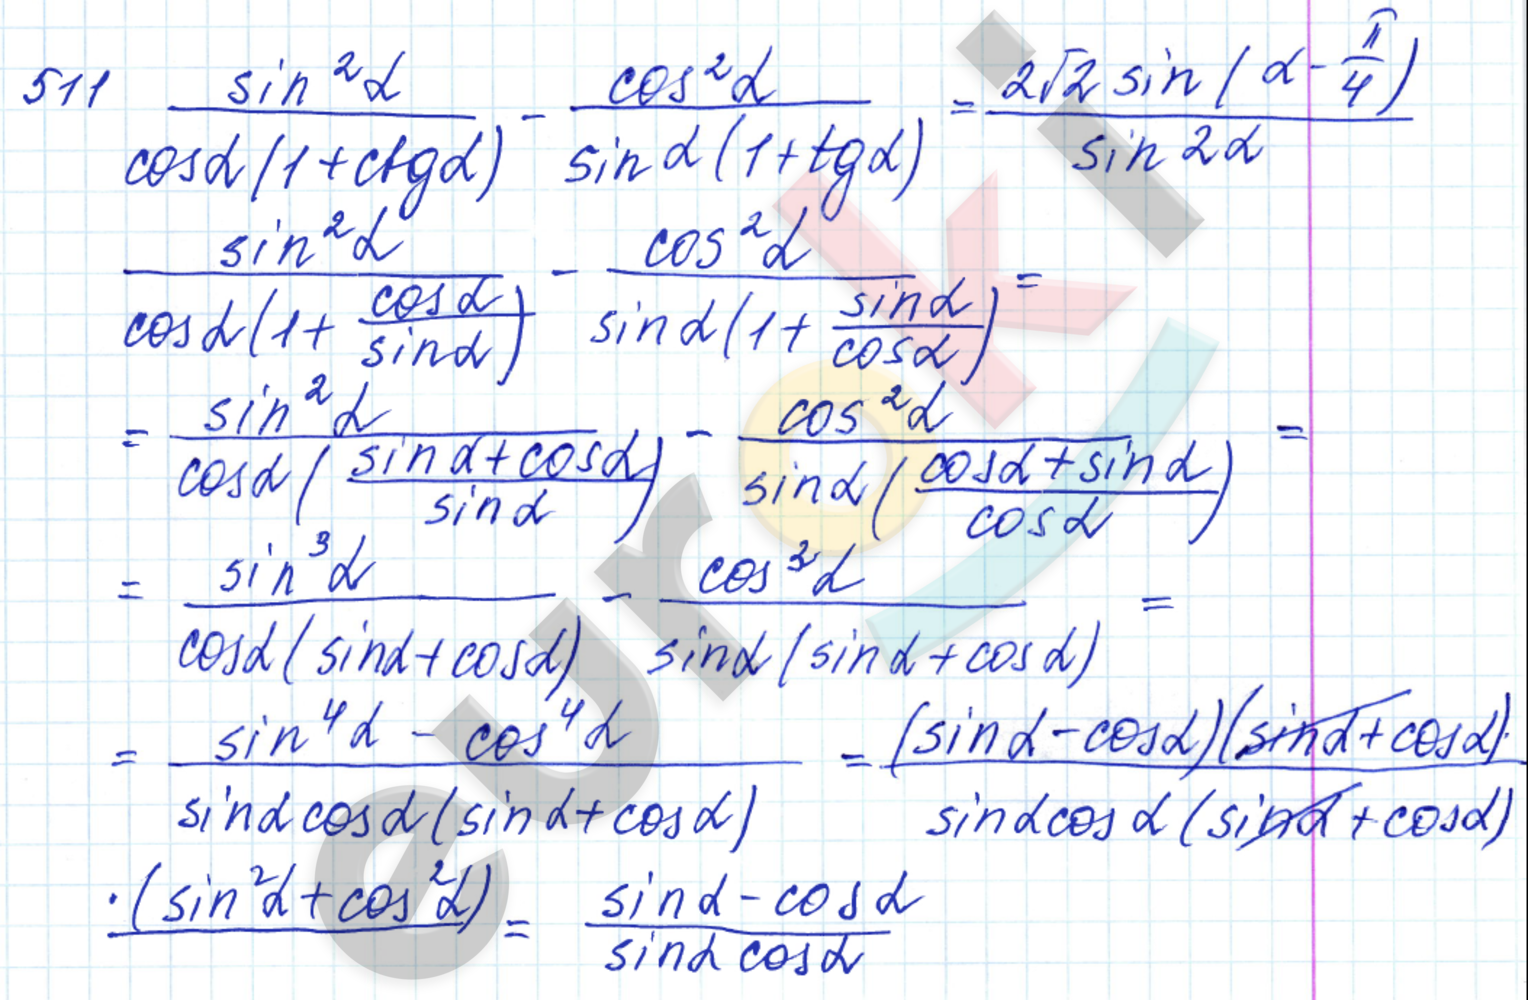 511 sin²α / (cosα(1+ctgα)) - cos²α / (sinα(1+tgα)) = 2√2 sin(α - π/4) / sin2α
sin²α / (cosα(1 + cosα/sinα)) - cos²α / (sinα(1 + sinα/cosα)) =
= sin²α / (cosα((sinα+cosα)/sinα)) - cos²α / (sinα((cosα+sinα)/cosα)) =
= sin³α / (cosα(sinα+cosα)) - cos³α / (sinα(sinα+cosα)) =
= (sin⁴α - cos⁴α) / (sinαcosα(sinα+cosα)) = (sinα-cosα)(sinα+cosα)· / (sinαcosα(sinα+cosα))
·(sin²α+cos²α) = (sinα-cosα) / (sinα cosα)
euroki